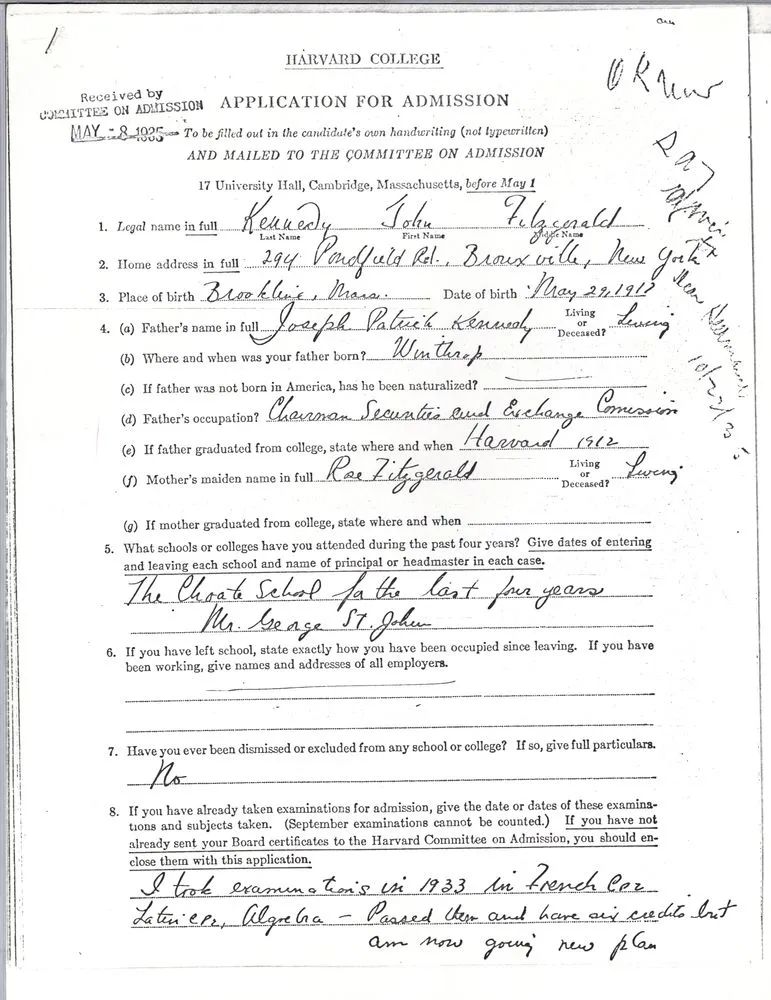 1
HARVARD COLLEGE
OK
Received by
COMMITTEE ON ADMISSION
MAY -8 1935
APPLICATION FOR ADMISSION
To be filled out in the candidate's own handwriting (not typewritten)
AND MAILED TO THE COMMITTEE ON ADMISSION
17 University Hall, Cambridge, Massachusetts, before May 1
1. Legal name in full Kennedy John Fitzgerald
Last Name First Name Middle Name
2. Home address in full 294 Pondfield Rd., Bronxville, New York
3. Place of birth Brookline, Mass. Date of birth May 29, 1917
4. (a) Father's name in full Joseph Patrick Kennedy Living or Deceased? Living
(b) Where and when was your father born? Winthrop
(c) If father was not born in America, has he been naturalized?
(d) Father's occupation? Chairman Securities and Exchange Comission
(e) If father graduated from college, state where and when Harvard 1912
(f) Mother's maiden name in full Rose Fitzgerald Living or Deceased? Living
(g) If mother graduated from college, state where and when
5. What schools or colleges have you attended during the past four years? Give dates of entering
and leaving each school and name of principal or headmaster in each case.
The Choate School for the last four years
Mr. George St. John
6. If you have left school, state exactly how you have been occupied since leaving. If you have
been working, give names and addresses of all employers.
7. Have you ever been dismissed or excluded from any school or college? If so, give full particulars.
No
8. If you have already taken examinations for admission, give the date or dates of these examina-
tions and subjects taken. (September examinations cannot be counted.) If you have not
already sent your Board certificates to the Harvard Committee on Admission, you should en-
close them with this application.
I took examinations in 1933 in French Cp2
Latin Cp2, Algebra - Passed them and have six credits but
am now going new plan